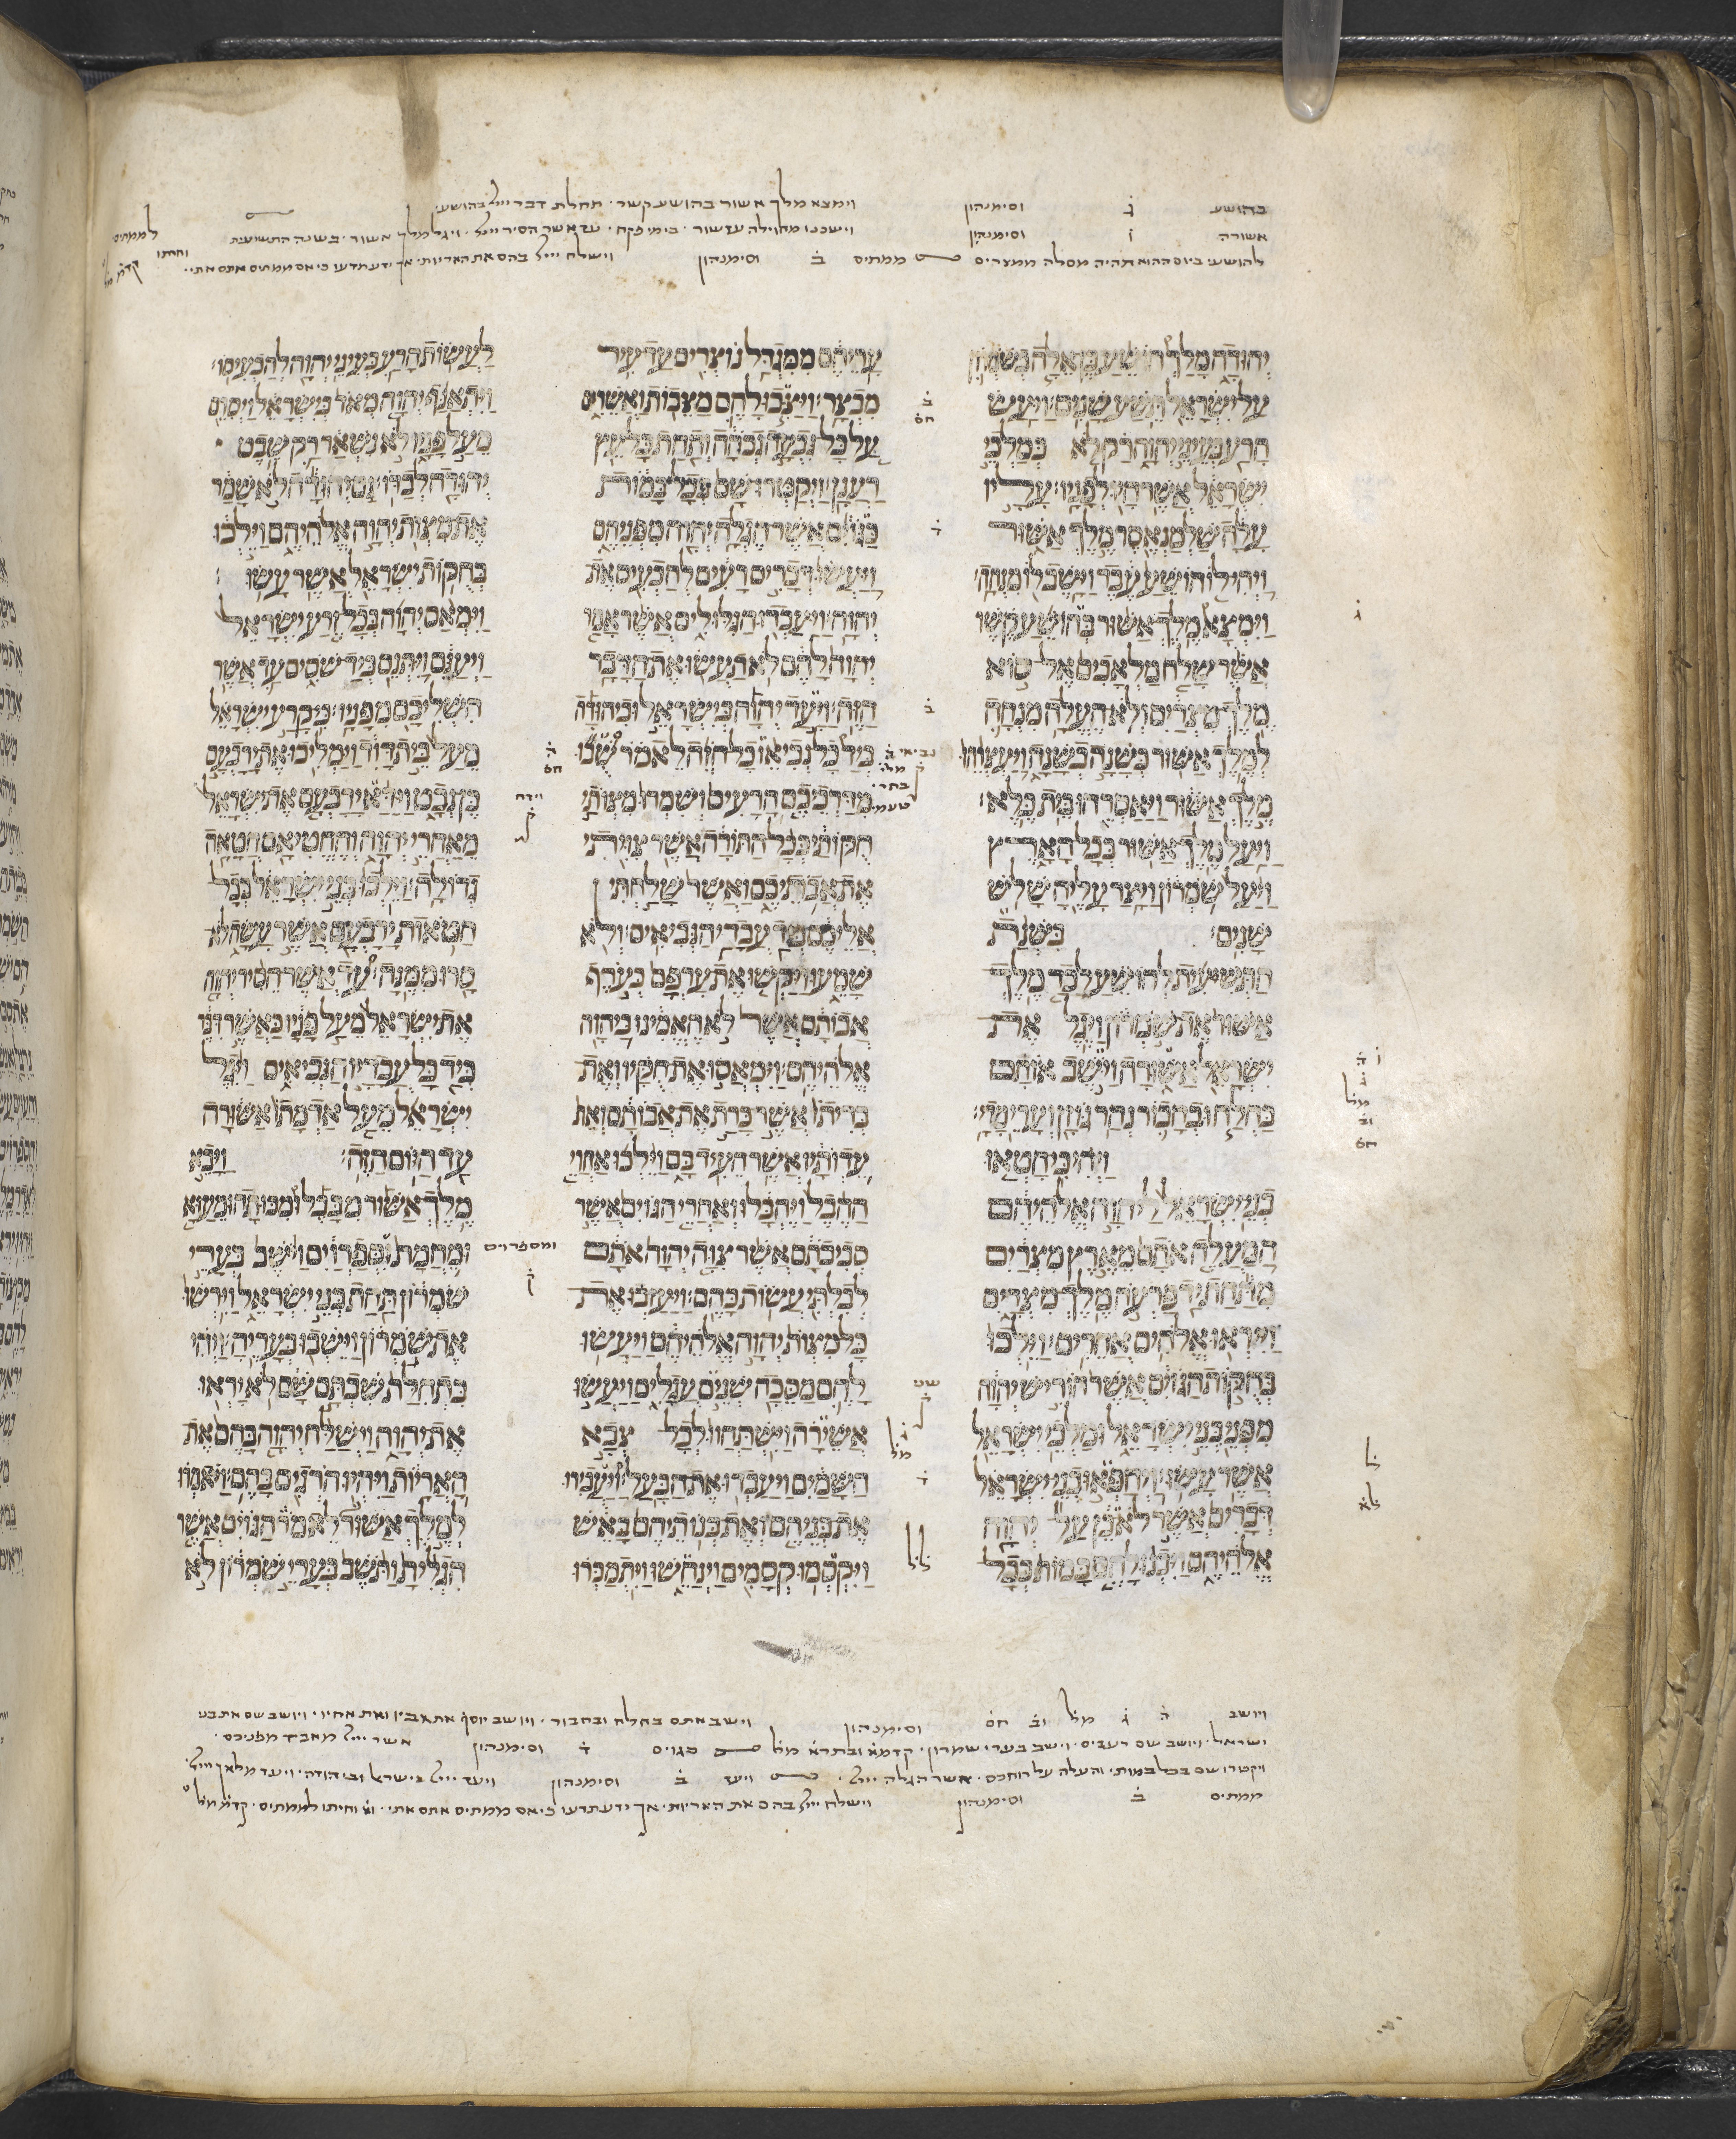 בהושע ג וסימנהון וימצא מלך אשור בהושע קשר תחלת דבר ייי בהושע
אשורה ו וסימנהון עד אשר הסיר ייי ויגל מלך אשור בשנה התשיעית
ביום ההוא תהיה מסלה ממצרים ממתים ב וסימנהון וישלח ייי בהם את האריות
יהודה מלך הושע בן אלה בשמרון
על ישראל תשע שנים ויעש
הרע בעיני יהוה רק לא כמלכי
ישראל אשר היו לפניו עליו
עלה שלמנאסר מלך אשור
ויהי לו הושע עבד וישב לו מנחה
וימצא מלך אשור בהושע קשר
אשר שלח מלאכים אל סוא
מלך מצרים ולא העלה מנחה
למלך אשור כשנה בשנה ויעצרהו
מלך אשור ויאסרהו בית כלא
ויעל מלך אשור בכל הארץ
ויעל שמרון ויצר עליה שלש
שנים בשנת
התשיעית להושע לכד מלך
אשור את שמרון ויגל את
ישראל אשורה וישב אותם
בחלח ובחבור נהר גוזן וערי מדי
ויהי כי חטאו
בני ישראל ליהוה אלהיהם
המעלה אתם מארץ מצרים
מתחת יד פרעה מלך מצרים
וייראו אלהים אחרים וילכו
בחקות הגוים אשר הוריש יהוה
מפני בני ישראל ומלכי ישראל
אשר עשו ויחפאו בני ישראל
דברים אשר לא כן על יהוה
אלהיהם ויבנו להם במות בכל
עריהם ממגדל נוצרים עד עיר
מבצר ויצבו להם מצבות ואשרים
על כל גבעה גבהה ותחת כל עץ
רענן ויקטרו שם בכל במות
כגוים אשר הגלה יהוה מפניהם
ויעשו דברים רעים להכעיס את
יהוה ויעבדו הגלולים אשר אמר
יהוה להם לא תעשו את הדבר
הזה ויעד יהוה בישראל וביהודה
ביד כל נביאו כל חזה לאמר שבו
מדרכיכם הרעים ושמרו מצותי
חקותי ככל התורה אשר צויתי
את אבתיכם ואשר שלחתי
אליכם ביד עבדי הנביאים ולא
שמעו ויקשו את ערפם כערף
אבותם אשר לא האמינו ביהוה
אלהיהם וימאסו את חקיו ואת
בריתו אשר כרת את אבותם ואת
עדותיו אשר העיד בם וילכו אחרי
ההבל ויהבלו ואחרי הגוים אשר
סביבתם אשר צוה יהוה אתם
לבלתי עשות כהם ויעזבו את
כל מצות יהוה אלהיהם ויעשו
להם מסכה שנים עגלים ויעשו
אשירה וישתחוו לכל צבא
השמים ויעבדו את הבעל ויעבירו
את בניהם ואת בנותיהם באש
ויקסמו קסמים וינחשו ויתמכרו
לעשות הרע בעיני יהוה להכעיסו
ויתאנף יהוה מאד בישראל ויסרם
מעל פניו לא נשאר רק שבט
יהודה לבדו גם יהודה לא שמר
את מצות יהוה אלהיהם וילכו
בחקות ישראל אשר עשו
וימאס יהוה בכל זרע ישראל
ויענם ויתנם ביד שסים עד אשר
השליכם מפניו כי קרע ישראל
מעל בית דוד וימליכו את ירבעם
בן נבט וידא ירבעם את ישראל
מאחרי יהוה והחטיאם חטאה
גדולה וילכו בני ישראל בכל
חטאות ירבעם אשר עשה לא
סרו ממנה עד אשר הסיר יהוה
את ישראל מעל פניו כאשר דבר
ביד כל עבדיו הנביאים ויגל
ישראל מעל אדמתו אשורה
עד היום הזה ויבא
מלך אשור מבבל ומכותה ומעוא
ומחמת וספרוים וישב בערי
שמרון תחת בני ישראל וירשו
את שמרון וישבו בעריה ויהי
בתחלת שבתם שם לא יראו
את יהוה וישלח יהוה בהם את
האריות ויהיו הרגים בהם ויאמרו
למלך אשור לאמר הגוים אשר
הגלית ותשב בערי שמרון לא
ויושב ה ג מל וב חס וסימנהון וישב אתם בחלח ובחבור ויושב יוסף את אביו ואת אחיו
ישראל ויושב שם רעבים וישב בערי שמרון קדמא ובתרא מל כגוים ד וסימנהון
ויקטרו שם בכל במות אשר הגלה ייי ויעד ב וסימנהון ויעד ייי בישראל וביהודה ויעד מלאך ייי
ממתים ב וסימנהון וישלח ייי בהם את האריות